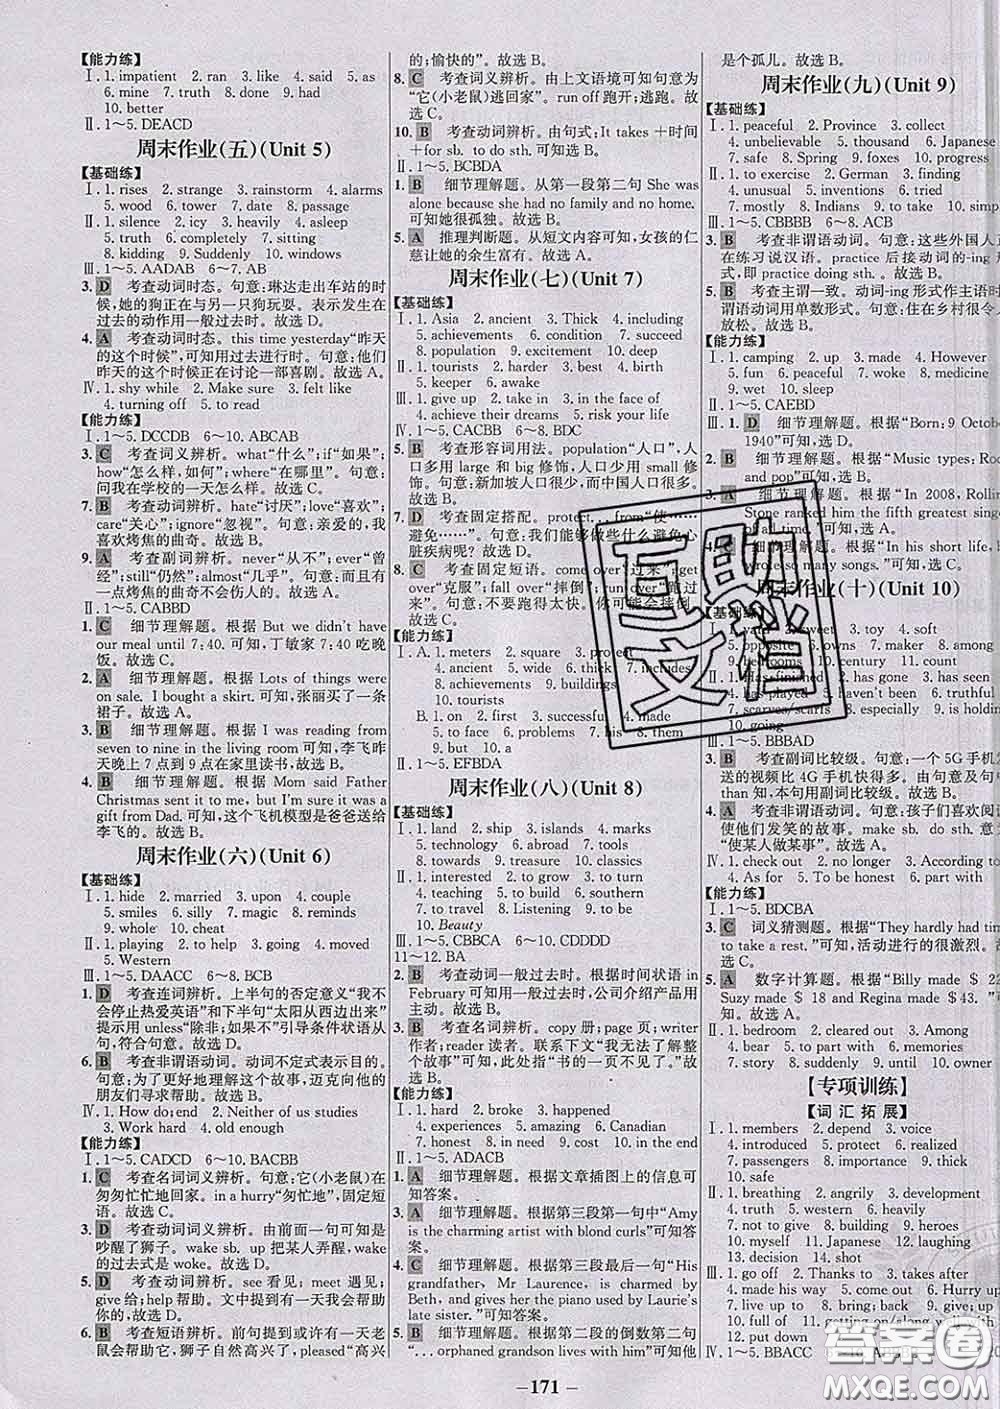 【能力练】
Ⅰ. 1. impatient 2. ran 3. like 4. said 5. as
6. mine 7. truth 8. done 9. had
10. better
Ⅱ. 1~5. DEACD
周末作业(五)(Unit 5)
【基础练】
Ⅰ. 1. rises 2. strange 3. rainstorm 4. alarms
5. wood 6. tower 7. date 8. passage
Ⅱ. 1. silence 2. icy 3. heavily 4. asleep
5. truth 6. completely 7. sitting
8. kidding 9. Suddenly 10. windows
Ⅲ. 1~5. AADAB 6~7. AB
3. D 考查动词时态。句意:琳达走出车站的时
候,她的狗正在与另一只狗玩耍。表示发生在
过去的动作用一般过去时。故选 D。
4. A 考查动词时态。this time yesterday“昨天
的这个时候”,可知用过去进行时。句意:他们
昨天的这个时候正在讨论一部喜剧。故选 A。
Ⅳ. 1. shy while 2. Make sure 3. felt like
4. turning off 5. to read
【能力练】
Ⅰ. 1~5. DCCDB 6~10. ABCAB
3. C 考查词义辨析。what“什么”;if“如果”;
how“怎么样,如何”;where“在哪里”。句意:
问我在学校的一天怎么样。故选 C。
7. B 考查动词辨析。hate“讨厌”;love“喜欢”;
care“关心”;ignore“忽视”。句意:亲爱的,我
喜欢烤焦的曲奇。故选 B。
9. A 考查副词辨析。never“从不”;ever“曾
经”;still“仍然”;almost“几乎”。句意:并且
一点烤焦的曲奇不会伤人的。故选 A。
Ⅱ. 1~5. CABBD
1. C 细节理解题。根据 But we didn't have
our meal until 7:40. 可知,丁敏家 7:40 吃晚
饭。故选 C。
2. A 细节理解题。根据 Lots of things were
on sale. I bought a skirt. 可知,张丽买了一条
裙子。故选 A。
3. B 细节理解题。根据 I was reading from
seven to nine in the living room 可知,李飞昨
天晚上 7 点到 9 点在家里读书,故选 B。
4. B 细节理解题。根据 Mom said Father
Christmas sent it to me, but I'm sure it was a
gift from Dad. 可知,这个飞机模型是爸爸送给
李飞的。故选 B。
周末作业(六)(Unit 6)
【基础练】
Ⅰ. 1. hide 2. married 3. upon 4. couple
5. smiles 6. silly 7. magic 8. reminds
9. whole 10. cheat
Ⅱ. 1. playing 2. to help 3. going 4. moved
5. Western
Ⅲ. 1~5. DAACC 6~8. BCB
1. D 考查连词辨析。上半句的否定意义“我不
会停止热爱英语”和下半句“太阳从西边出来”
提示用 unless“除非;如果不”引导条件状语从
句,符合句意。故选 D。
6. B 考查非谓语动词。动词不定式表示目的。
句意:为了更好地理解这个故事,迈克向他的
朋友们寻求帮助。故选 B。
Ⅳ. 1. How do; end 2. Neither of us studies
3. Work hard 4. old enough
【能力练】
Ⅰ. 1~5. CADCD 6~10. BACBB
1. C 考查名词词义辨析。句意:它(小老鼠)在
匆匆忙忙地回家。in a hurry“匆忙地”,固定短
语。故选 C。
3. D 考查动词词义辨析。由前面一句可知是
吵醒了狮子。wake sb. up 把某人弄醒,wake
的过去式是 woke。故选 D。
5. D 考查动词辨析。see 看见;meet 遇见;
give 给;help 帮助。文中指有一天我会帮助
你的。故选 D。
6. B 考查短语辨析。前句提到或许有一天老
鼠会帮助它,狮子自然高兴了,pleased“高兴
的;愉快的”。故选 B。
8. C 考查词义辨析。由上文语境可知句意为
“它(小老鼠)逃回家”。run off 跑开;逃跑。故
选 C。
10. B 考查动词辨析。由句式:It takes +时间
+for sb. to do sth. 可知选 B。
Ⅱ. 1~5. BCBDA
1. B 细节理解题。从第一段第二句 She was
alone because she had no family and no home.
可知她很孤独。故选 B。
5. A 推理判断题。从短文内容可知,女孩的仁
慈让她的余生富有。故选 A。
周末作业(七)(Unit 7)
【基础练】
Ⅰ. 1. Asia 2. ancient 3. Thick 4. including
5. achievements 6. condition 7. succeed
8. population 9. excitement 10. deep
Ⅱ. 1. tourists 2. harder 3. best 4. birth
5. keeper 6. awake
Ⅲ. 1. give up 2. take in 3. in the face of
4. achieve their dreams 5. risk your life
Ⅳ. 1~5. CACBB 6~8. BDC
5. B 考查形容词用法。population“人口”,人
口多用 large 和 big 修饰;人口少用 small 修
饰。句意:新加坡人口很少,而印度人口很多。
故选 B。
7. D 考查固定搭配。protect... from“使……
避免……”。句意:我们能够做些什么避免心
脏疾病呢?故选 D。
8. C 考查固定短语。come over“过来”;get
over“克服”;fall over“摔倒”;run over“跑过
来”。句意:不要跑得太快。你可能会摔倒。
故选 C。
【能力练】
Ⅰ. A. 1. meters 2. square 3. protect
4. ancient 5. wide 6. thick 7. includes
8. achievements 9. buildings
10. tourists
B. 1. on 2. first 3. successful 4. made
5. to face 6. problems 7. his 8. them
9. but 10. a
Ⅱ. 1~5. EFBDA
周末作业(八)(Unit 8)
【基础练】
Ⅰ. 1. land 2. ship 3. islands 4. marks
5. technology 6. abroad 7. tools
8. towards 9. treasure 10. classics
Ⅱ. 1. interested 2. to grow 3. to turn
4. teaching 5. to build 6. southern
7. to travel 8. Listening 9. to be
10. Beauty
Ⅲ. 1~5. CBBCA 6~10. CDDDD
11~12. BA
2. B 考查动词一般过去时。根据时间状语 in
February 可知用一般过去时,公司介绍产品用
主动。故选 B。
3. B 考查名词辨析。copy 册;page 页;writer
作者;reader 读者。联系下文“我无法了解整
个故事”可知,此处指“书的一页不见了。”故
选 B。
【能力练】
Ⅰ. 1. hard 2. broke 3. happened
4. experiences 5. amazing 6. Canadian
7. honest 8. in need 9. cost 10. in the end
Ⅱ. 1~5. ADACB
1. A 细节理解题。根据文章插图上的信息可
知答案。
3. A 细节理解题。根据第三段第一句中“Amy
is the charming artist with blond curls”可知答
案。
4. C 细节理解题。根据第三段最后一句“His
grandfather, Mr Laurence, is charmed by
Beth, and gives her the piano used by Laurie's
late sister.”可知答案。
5. B 细节理解题。根据第二段的倒数第二句
“... orphaned grandson lives with him”可知他
是个孤儿。故选 B。
周末作业(九)(Unit 9)
【基础练】
Ⅰ. 1. peaceful 2. Province 3. collect
4. unbelievable 5. thousand 6. Japanese
7. safe 8. Spring 9. foxes 10. progress
Ⅱ. 1. to exercise 2. German 3. finding
4. unusual 5. inventions 6. tried
7. mostly 8. Indians 9. to take 10.
Ⅲ. 1~5. CBBBB 6~8. ACB
3. B 考查非谓语动词。句意:这些外国人正
在练习说汉语。practice 后接动词的-ing 形
式,即 practice doing sth. 。故选 B。
5. B 考查主谓一致。动词-ing 形式作主语时
谓语动词用单数形式。句意:住在乡村很令人
放松。故选 B。
【能力练】
Ⅰ. 1. camping 2. up 3. made 4. However
5. fun 6. use 7. noodles 8. developed
9. wet 10. sleep
Ⅱ. 1~5. CAEBD
Ⅲ. 1. D 细节理解题。根据“Born: 9 October
1940”可知选 D。
2. B 细节理解题。根据“Music types: Rock
and pop”可知,选 B。
3. A 细节理解题。根据“In 2008, Rolling
Stone ranked him the fifth greatest singer
of all time.”可知选 A。
4. C 细节理解题。根据“In his short life,
wrote so many songs.”可知选 C。
周末作业(十)(Unit 10)
【基础练】
Ⅰ. 1. yard 2. sweet 3. toy 4. soft
5. opposite 6. crazy 7. among
9. bedrooms 10. century 11. count
Ⅱ. 1. Has finished 2. has gone 3. has seen
4. has been 5. have given 6. truthful
7. scarves/scarfs 8. especially 9. is holding
10. going
Ⅲ. 1~5. BBBAD
3. B 考查副词比较级。句意:一个 5G 手机发
送的视频比 4G 手机快得多。由句意及句中
than 知,本句用副词比较级。故选 B。
4. A 考查非谓语动词。句意:孩子们喜欢阅读
使他们发笑的故事。make sb. do sth. 意
“使某人做某事”。故选 A。
Ⅳ. 1. check out 2. no longer 3. According to
4. As for 5. To be honest 6. part with
【能力练】
Ⅰ. 1~5. BDCBA
3. C 词义猜测题。根据“They hardly had time
to take a rest.”可知,活动进行的很激烈。故
选 C。
5. A 数字计算题。根据“Billy made $ 22
Suzy made $ 18 and Regina made $43. ”可
知。故选 A。
Ⅱ. 1. bedroom 2. cleared out 3. Among
4. bear 5. to part with 6. memories
7. story 8. suddenly 9. until 10. owner
【专项训练】
【词 汇 拓 展】
Ⅰ. 1. members 2. depend 3. voice
4. introduced 5. protect 6. realized
7. passengers 8. importance 9. thick
10. safe
Ⅱ. 1. breathing 2. angrily 3. development
4. truth 5. western 6. heavily
7. not to give 8. building 9. heroes
10. myself 11. Japanese 12. laughing
13. decision 14. shot
Ⅲ. 1. go off 2. Thanks to 3. takes after
4. made his way 5. come out 6. Hurry up
7. lives up to 8. bring; back 9. give; up
10. full of 11. getting on/along well with
12. put down
Ⅳ. 1~5. BBACC
— 171 —
互助文档
答案圈
MXQE.COM